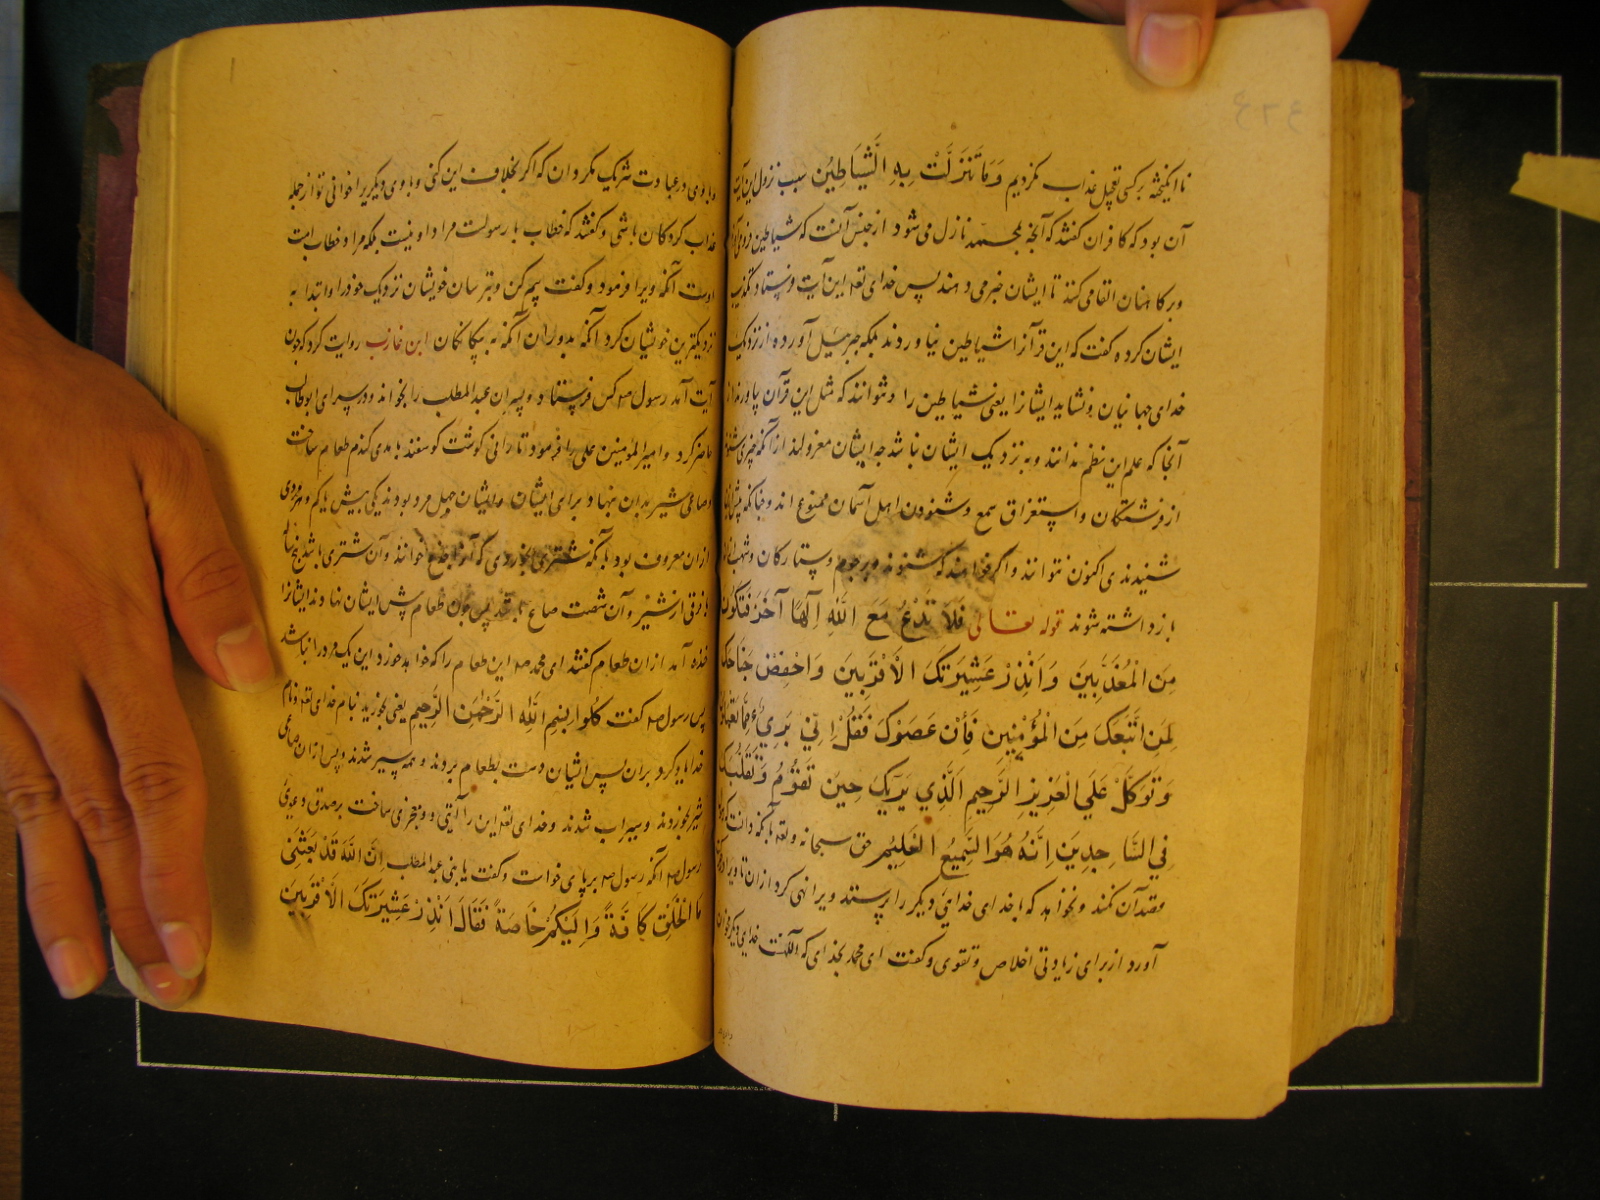 ناانکیخته بر کسی تعجیل عذاب نکردیم وَمَا تَنَزَّلَتْ بِهِ الشَّيَاطِينُ سبب نزول این آیت
آن بود که کافران گفتند که آنچه بمحمد نازل می شود از جنس آنست که شیاطین
وبر کاهنان القا می کنند تا ایشان خبر می دهند پس خدای تعه این آیت فرستاد و تکذیب
ایشان کرده گفت که این قرآنرا شیاطین نیاوردند بلکه جبرئیل آورده از نزدیک
خدای جهانیان ونشاید ایشانرا یعنی شیاطین را ونتوانند که مثل این قرآن بیاورند از
آنجا که علم این نظم ندانند وبه نزدیک ایشان نباشد چه ایشان معزولند از آنکه چیزی شنوند
از فرشتگان واستغراق سمع وشنودن اهل آسمان ممنوع اند وچنانکه پیش
شنیدندی اکنون نتوانند واگر خواهند که بشنوند برجوم وستارکان وشهب
بازداشته شوند قوله تعالی فَلَا تَدْعُ مَعَ اللَّهِ اِلٰهًا آخَرَ فَتَكُونَ
مِنَ الْمُعَذَّبِينَ وَاَنْذِرْ عَشِيرَتَكَ الْاَقْرَبِينَ وَاخْفِضْ جَنَاحَكَ
لِمَنِ اتَّبَعَكَ مِنَ الْمُؤْمِنِينَ فَاِنْ عَصَوْكَ فَقُلْ اِنِّي بَرِيءٌ مِمَّا تَعْمَلُونَ
وَتَوَكَّلْ عَلَي الْعَزِيزِ الرَّحِيمِ الَّذِي يَرٰيكَ حِينَ تَقُومُ وَتَقَلُّبَكَ
فِي السَّاجِدِينَ اِنَّهُ هُوَ السَّمِيعُ الْعَلِيمُ حق سبحانه وتعه بآنکه دانست که
مقصد آن نکند ونخواهد که با خدای خدایی دیگر را پرستد ویرا نهی کرد از آن تا ویرا
آورد از برای زیادتی اخلاص وتقوی وگفت ای محمد بخدای که الله است خدای دیگر
وبا وی در عبادت شریک مگردان که اگر بخلاف این کنی وبا وی دیگریرا خوانی تو از جمله
عذاب کردگان باشی وگفتند که خطاب با رسولست مراد او نیست بلکه مراد خطاب امت
اوست آنگه ویرا فرمود وگفت بیم کن وبترسان خویشان نزدیک خود را وابتدا به
نزدیکترین خویشان کرد آنگه بدوران آنگه به بیگانگان ابن عازب روایت کرد که چون
آیت آمد رسول صه کس فرستاد وپسران عبدالمطلب را بخواند ودر سرای ابوطالب
حاضر کرد وامیرالمؤمنین علی را فرمود تا رانی گوشت گوسفند با مدی گندم طعام ساخت
وصاعی شیر بدان نهاد برای ایشان وایشان چهل مرد بودند یکی بیش یا کم وهر مردی
ازان معروف بود بآنکه شتری بخوردی که آنرا جذع خوانند وآن شتری باشد پنج ساله
با زقی از شیر وآن شصت صاع باشد پس چون طعام پیش ایشان نهادند ایشانرا
خنده آمد ازان طعام گفتند ای محمد صه این طعام را که خواهد خورد این یک مرد را نباشد
پس رسول صه گفت كُلُوا بِسْمِ اللَّهِ الرَّحْمٰنِ الرَّحِيمِ یعنی بخورید بنام خدای تعه ونام
خدا یاد کرد بران پس ایشان دست بطعام بردند وهمه سیر شدند وپس ازان صاعی
شیر بخوردند وسیراب شدند وخدای تعه این را آیتی ومعجزی ساخت بر صدق دعوی
رسول صه آنگه رسول صه بر پای خواست وگفت یا بنی عبدالمطلب اِنَّ اللَّهَ قَدْ بَعَثَنِي
اِلَى الْخَلْقِ كَافَّةً وَاِلَيْكُمْ خَاصَّةً فَقَالَ اَنْذِرْ عَشِيرَتَكَ الْاَقْرَبِينَ